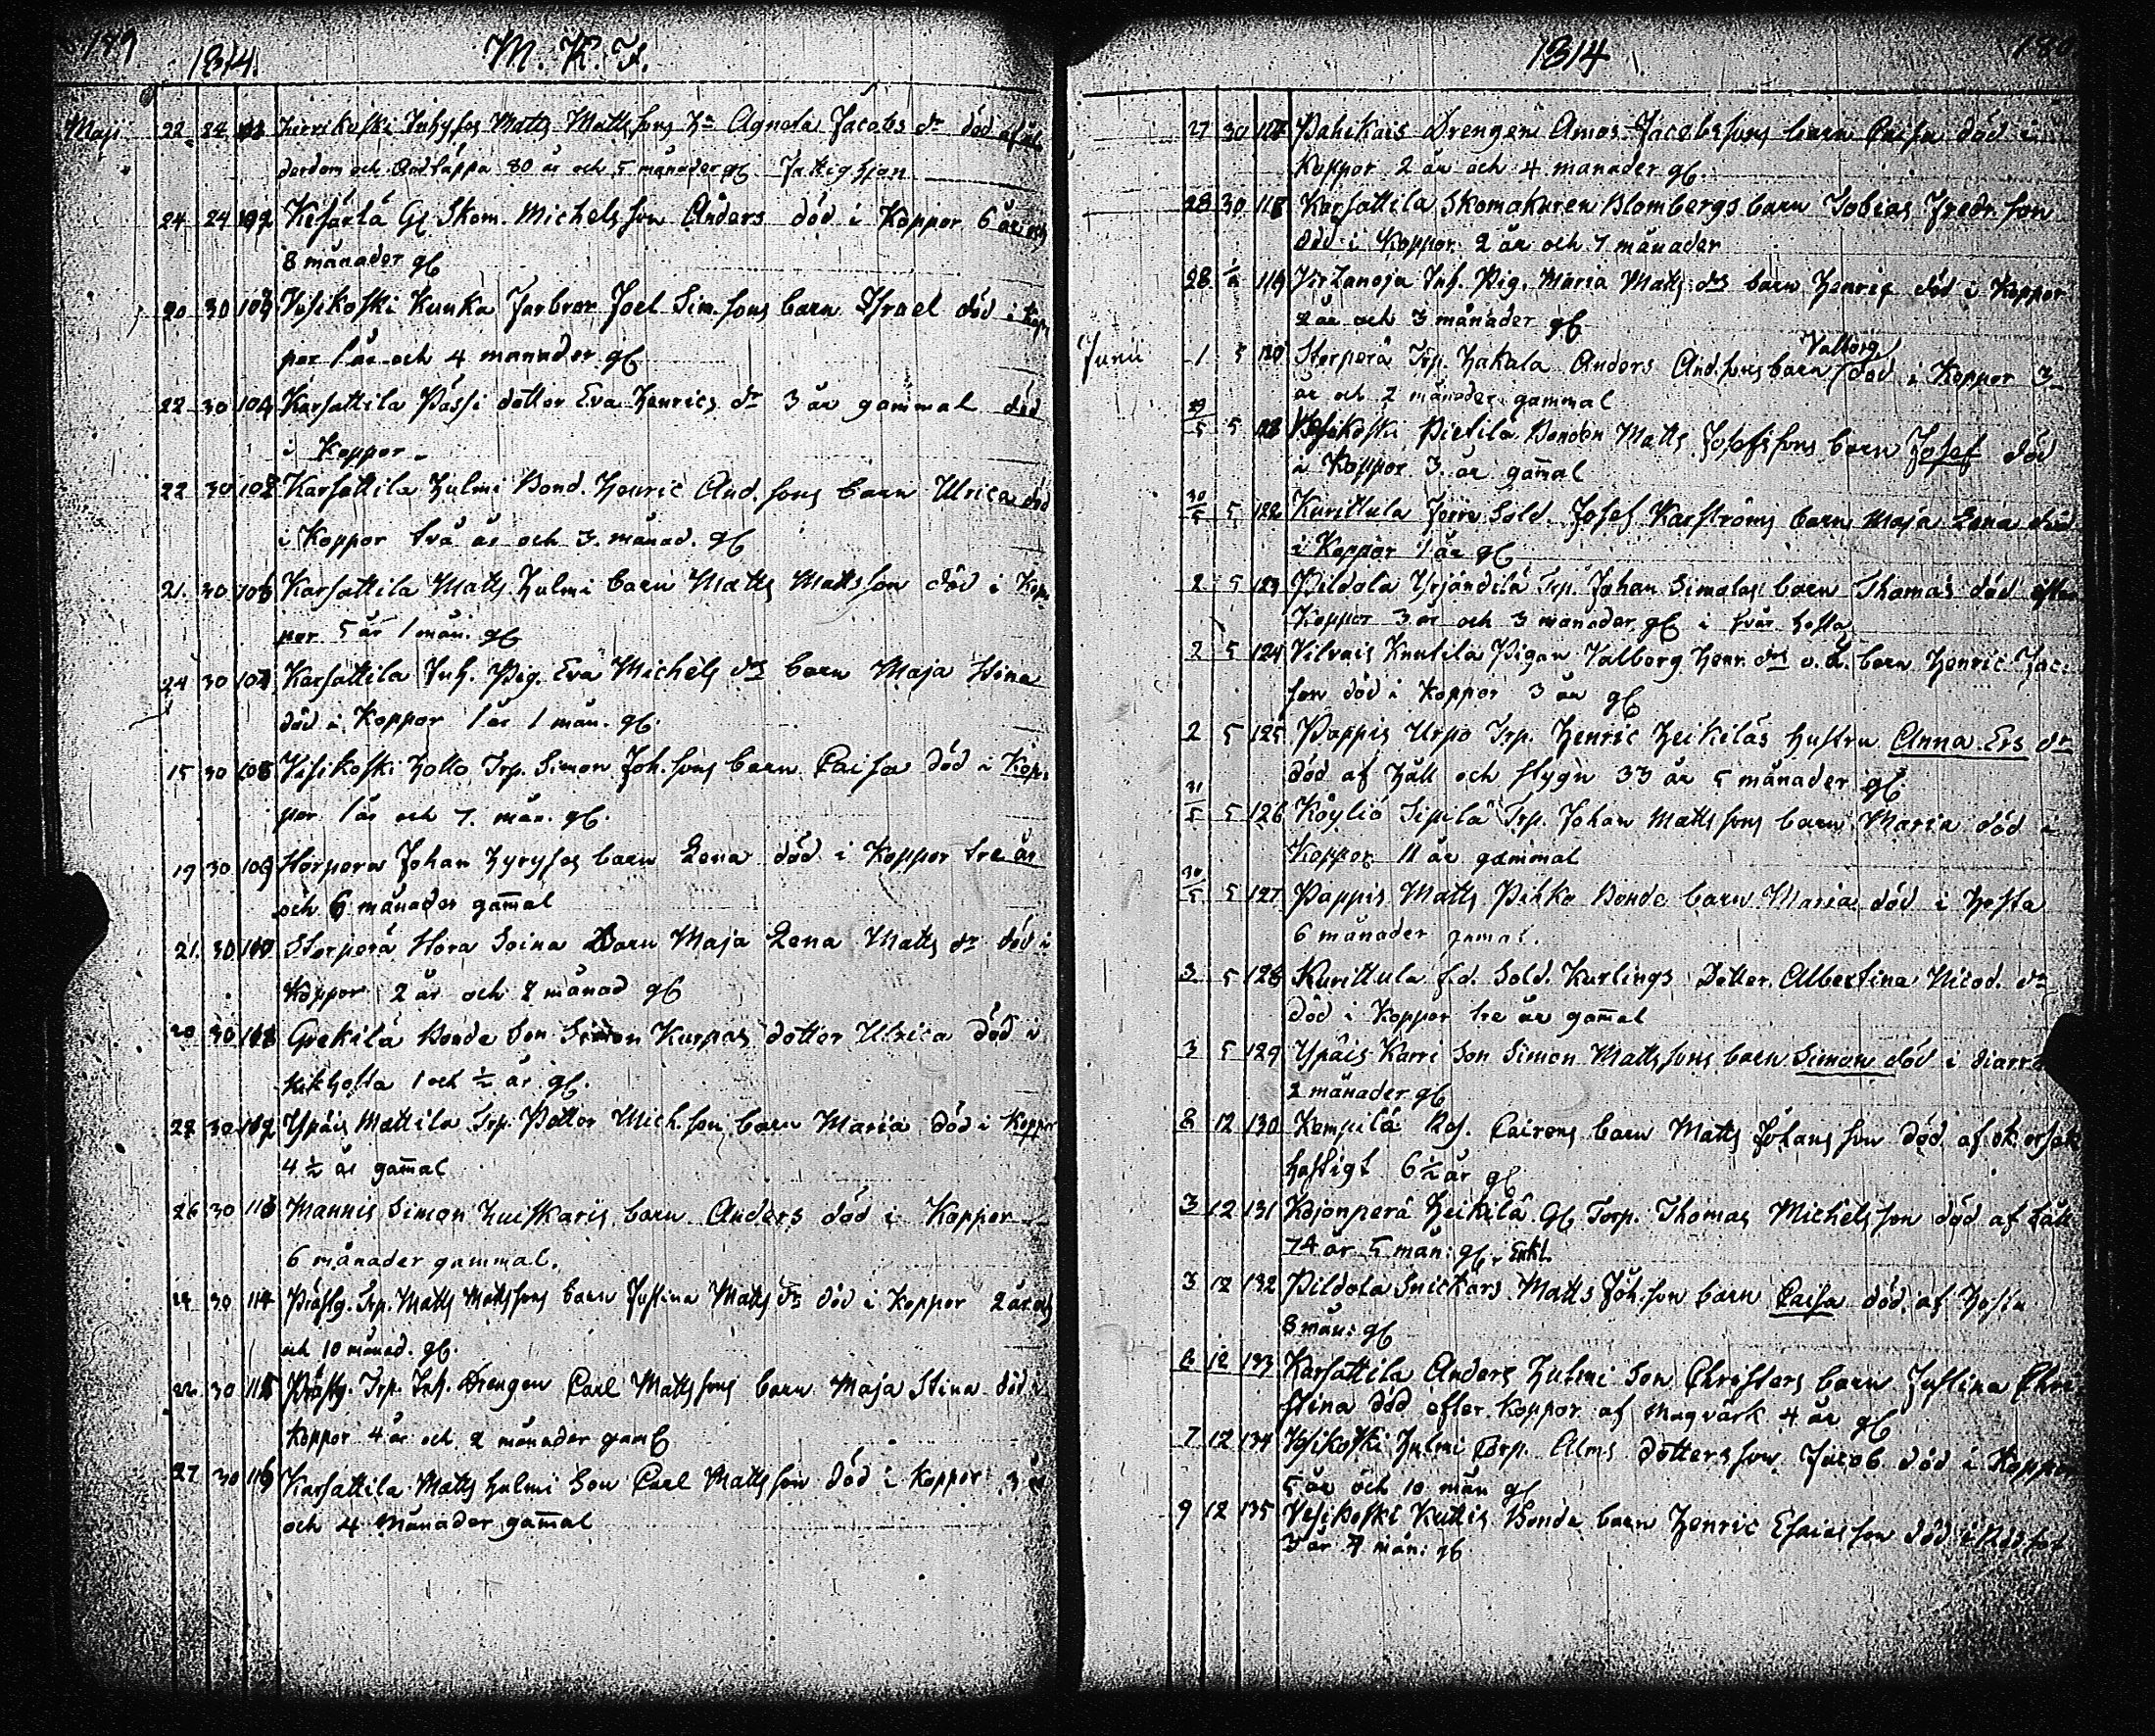 179 1814. M. K. F.
Maji 22 24 Matts Mattssons Hu Agneta Jacobs dr död af ål
derdom och Andtäppa 80 år och 5 månader gl.
24 24 102 Kesäelä Gl Skom. Michelsson Anders död i Koppor 6 år och
8 månader gl
20 30 103 Vesikoski Kunka Farbror Joel Sim.sons barn Israel död i Kop
por 1 år och 4 månader gl
22 30 104 Karsattila Pässi dotter Eva Henrics dr 3 år gammal död
i Koppor
22 30 105 Karsattila Hulmi Bond. Henric And.sons barn Ulrica död
i Koppor två år och 3. månad. gl
21. 30 106 Karsattila Matts Hulmi barn Matts Mattsson död i Kop
por 5 år 1 mån. gl
24 30 107 Karsattila Inh. Pig. Eva Michels drs barn Maja Stina
död i Koppor 1 år 1 mån. gl.
15 30 108 Vesikoski Hollo Trp. Simon Joh.sons barn Caisa död i Kop.
por 1 år och 7. mån. gl.
19 30 109 Storpera Johan Hyrysos barn Lena död i Koppor tre år
och 6 månader gamal
21. 30 110 Storperä Hora Soina Barn Maja Lena Matts dr död i
Koppor 2 år och 2 månad gl
20 30 111 Grekilä Bonde Son Simon Kurpas dotter Ulrica död i
kikhosta 1 och ½ år gl.
22 30 112 Ypäis Mattila Trp. Petter Mich.son barn Maria död i Koppor
4 ½ år gamal
26 30 113 Mannis Simon Huiskaris barn Anders död i Koppor
6 månader gammal.
22 30 114 Prästg. Trp. Matts Mattssons barn Justina Matts dr död i Koppor 2 år och
och 10 månad. gl.
22. 30 115 Prästg. Trp. Inh. Drengen Carl Mattssons barn Maja Stina död i
Koppor 4 år och 2 månader gaml
27 30 116 Karsattila Matts Hulmi Son Carl Mattsson död i Koppor 3 år
och 4 Månader gamal
1814 180
27 30 117 Pahikais Drengen Amos Jacobssons barn Caisa död i
Koppor 2 år och 4 månader gl.
28 30 118 Karsattila Skomakaren Blombergs barn Tobias Fredr.son
död i Koppor 2 år och 7 månader
28 119 Virtanoja Inh. Pig. Maria Matts drs barn Henric död i Koppor
2 år och 3 månader gl
Valborg
Junii 1 5 120 Storperä Trp. Hakala Anders And.sons barn död i Koppor 3
år och 2 månader gammal
29/5 5 121 Vesikoski Pietilä Bonden Matts Josefssons barn Josef död
i Koppor 3. år gamal
30/5 5 122 Kurittula Sold. Josef Karströms barn Maja Lena död
i Koppor 1 år gl
2 5 123 Pildola Yrjändilä Trp. Johan Simolas barn Thomas död efter
Koppor 3 år och 3 månader gl i svår hosta
2 5 124 Vilvais Knutila Pigan Valborg Henr. drs o.ä. barn Henric Jac.
son död i Koppor 3 år gl
2 5 125 Pappis Urpo Trp. Henric Heikiläs hustru Anna Ers dr
död af Håll och Stygn 33 år 5 månader gl.
31/5 5 126 Köyliö Sipilä Trp. Johan Mattssons barn Maria död i
Koppor 11 år gammal
30/5 5 127 Pappis Matts Pihka Bonde barn Maria död i Hosta
6 månader
3 5 128 Kurittula f.d. Sold. Kurlings Dotter Albertina Nicod. dr
död i Koppor tre år gamal
3 5 129 Ypäis Karri Son Simon Mattssons barn Simon död i
2 månader gl
8 12 130 Kempilä barn Matts Johansson död af
hastigt 6½ år gl
3 12 131 Kojonperä Heikilä Gl Torp. Thomas Michelsson död af håll
74 år 5 mån: gl. Enkl.
3 12 132 Pildola Snickars Matts Joh.son barn Caisa död af Hosta
8 mån: gl
6 12 133 Karsattila Anders Hulmi Son Christers barn Justina Chri
stina död efter Koppor af Magvärk 4 år gl
7 12 134 Vesikoski Hulmi Torp. Alms dotters son Jacob död i Koppor
5 år och 10 mån gl
9 12 135 Vesikoski Kuttis Bonde barn Henric Esaiasson död i
3 år 7 mån: gl